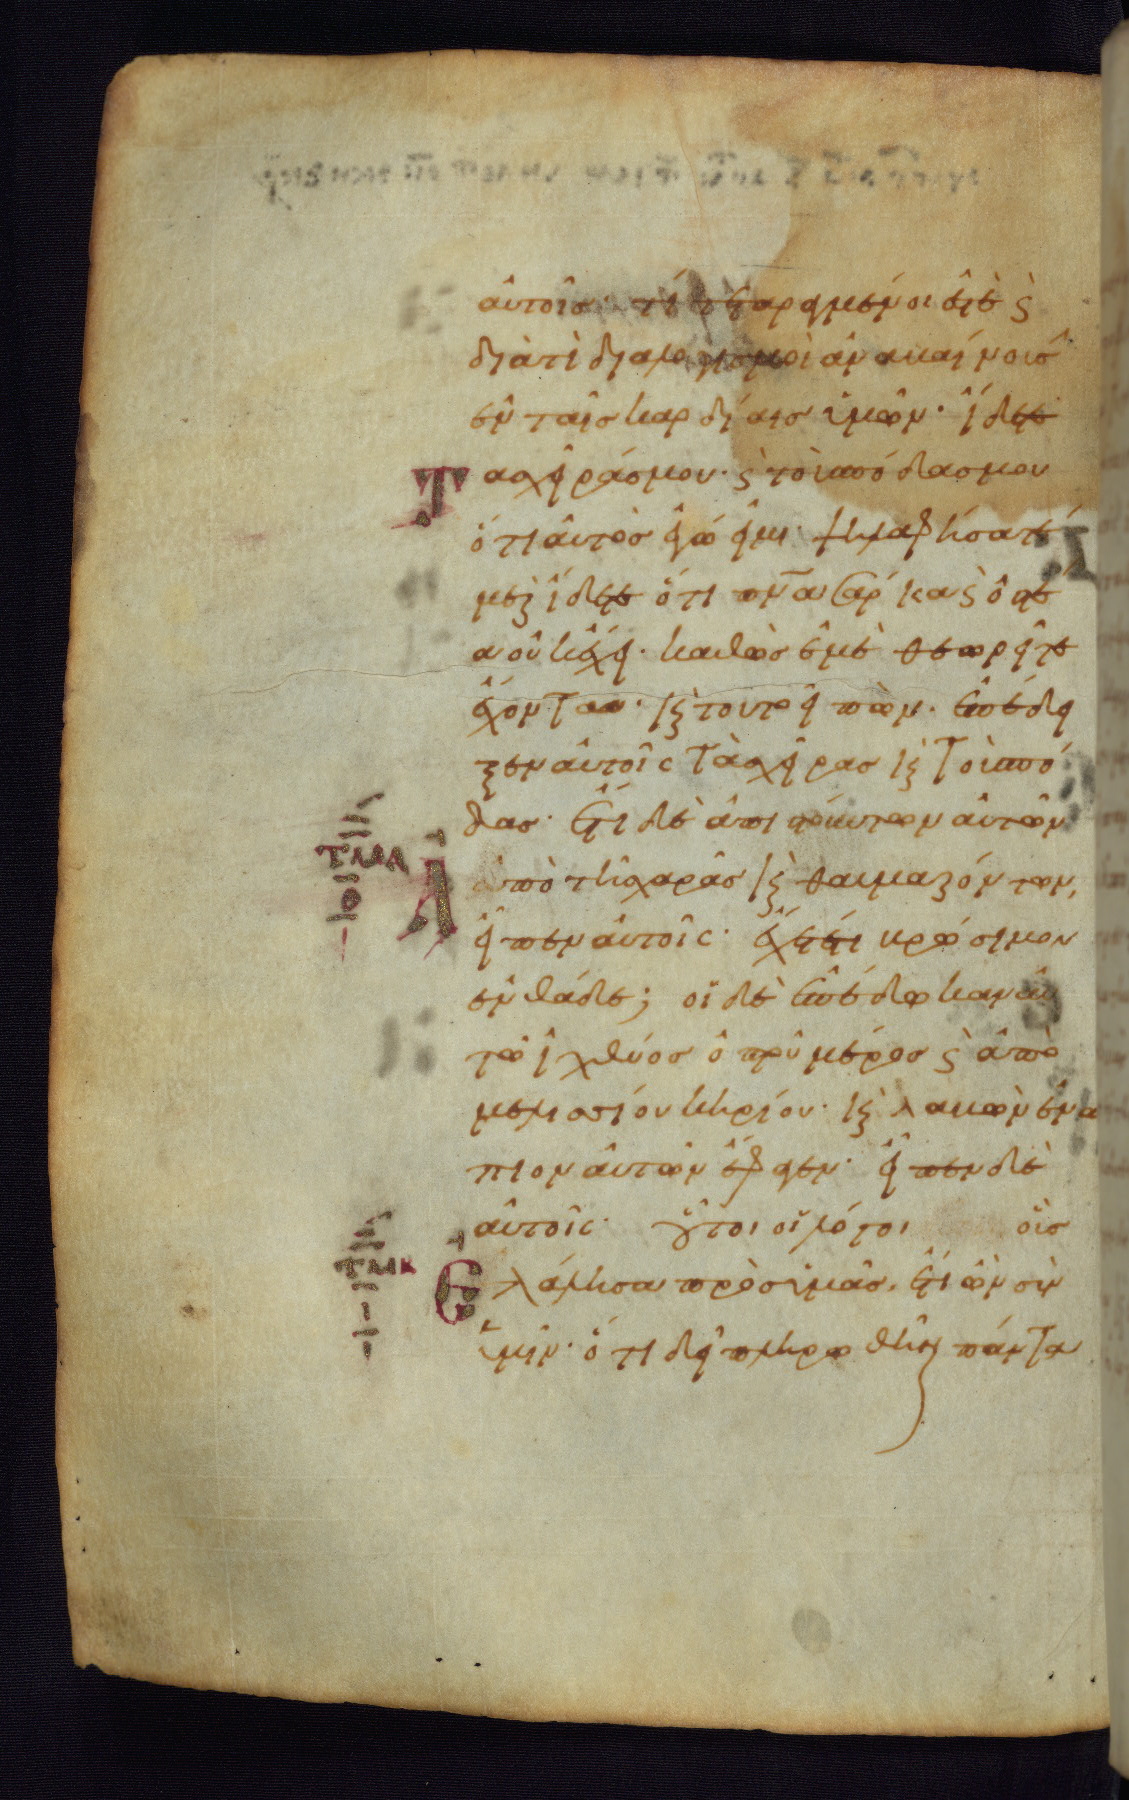 αὐτοῖς· τί τεταραγμένοι ἐστὲ ϗ
διὰ τί διαλογισμοὶ ἀναβαίνουσ
ἐν ταῖς καρδίαις ὑμῶν· ἴδετε
Τὰς χεῖράς μου· ϗ τοὺς πόδας μου
ὅτι αὐτὸς ἐγώ εἰμι· ψηλαφήσατέ
με ϗ ἴδετε ὅτι πνα σάρκα ϗ ὀστέ
α οὐκ ἔχει· καθὼς ἐμὲ θεωρεῖτε
ἔχοντα· ϗ τοῦτο εἰπὼν· ἐπέδει
ξεν αὐτοῖς τὰς χεῖρας ϗ τοὺς πό
δας· ἔτι δὲ ἀπιστούντων αὐτῶν
τμα
Ἀπὸ τῆς χαρᾶς ϗ θαυμαζόντων,
εἶπεν αὐτοῖς· ἔχετέ τι βρώσιμον
ἐνθάδε; οἱ δὲ ἐπέδωκαν αὐ
τῶ ἰχθύος ὀπτοῦ μέρος ϗ ἀπὸ
μελισσίου κηρίου· ϗ λαβὼν ἐνώ
πιον αὐτῶν ἔφαγεν· εἶπεν δὲ
αὐτοῖς· οὗτοι οἱ λόγοι οὓς
τμβ
Ἐλάλησα πρὸς ὑμᾶς, ἔτι ὢν σὺν
ὑμῖν· ὅτι δεῖ πληρωθῆναι πάντα